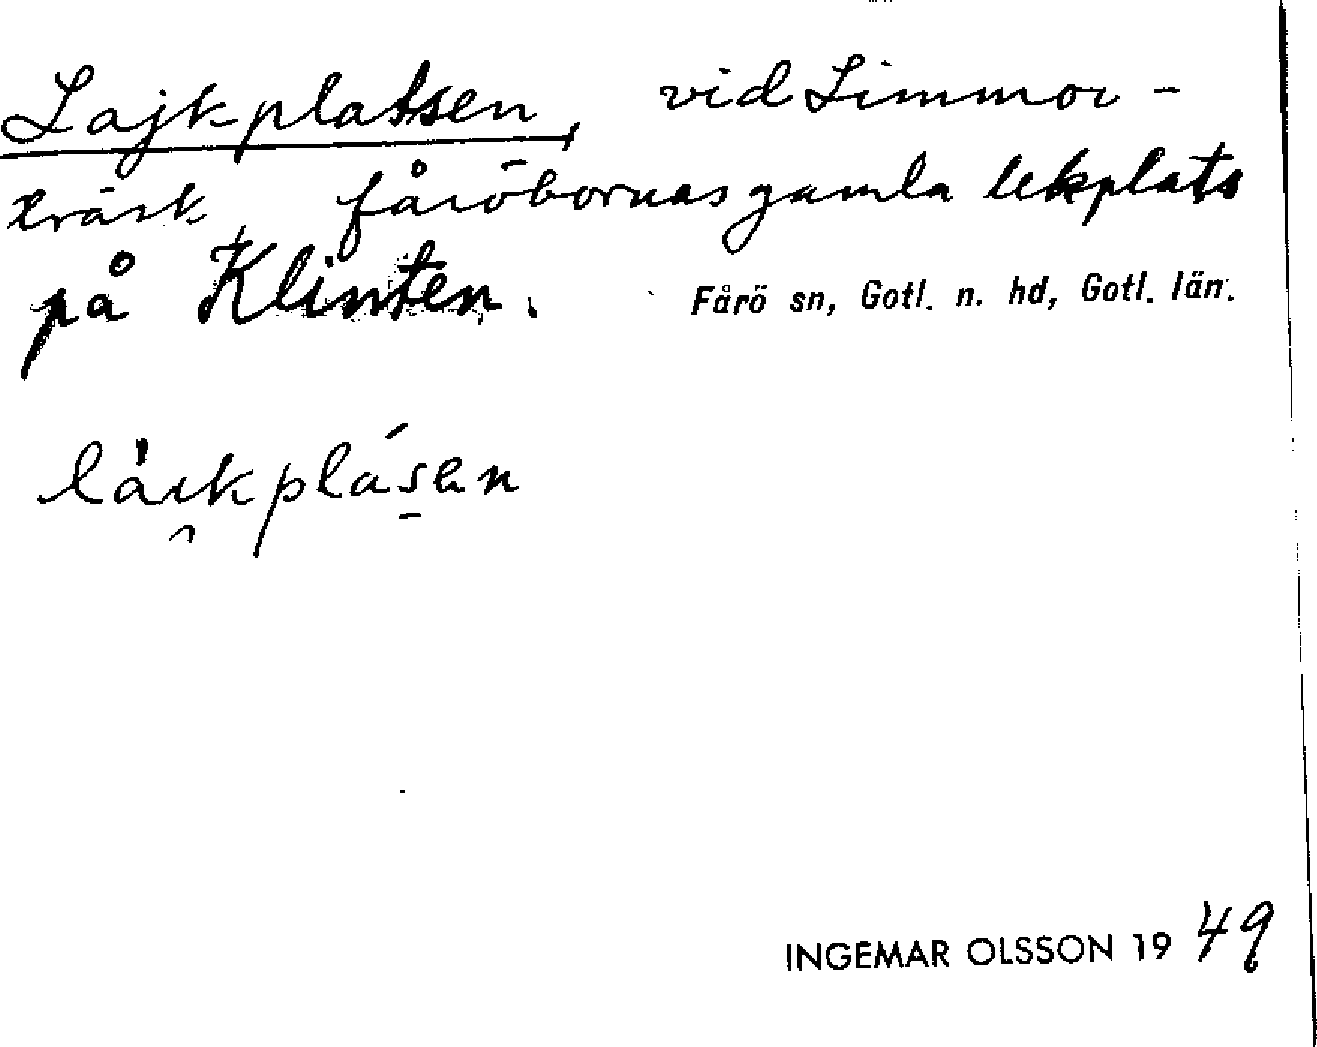 Lajkplatsen, vid Limmor-
träsk, fåröbornas gamla lekplats
på Klinten.
Fårö sn, Gotl. n. hd, Gotl. län.
INGEMAR OLSSON 1949